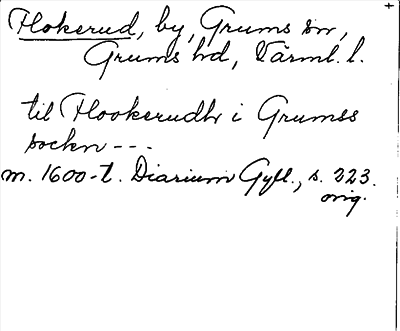 Flokerud, by, Grums sn,
Grums hd, Värml. l.
til Flookerudhr i Grumss
sockn ---
m. 1600-t. Diarium Gyll., s. 223.
orig.